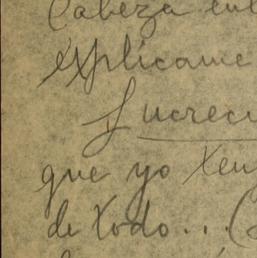 Cabeza ent
explícame
Lucreci
que yo ten
de todo... (